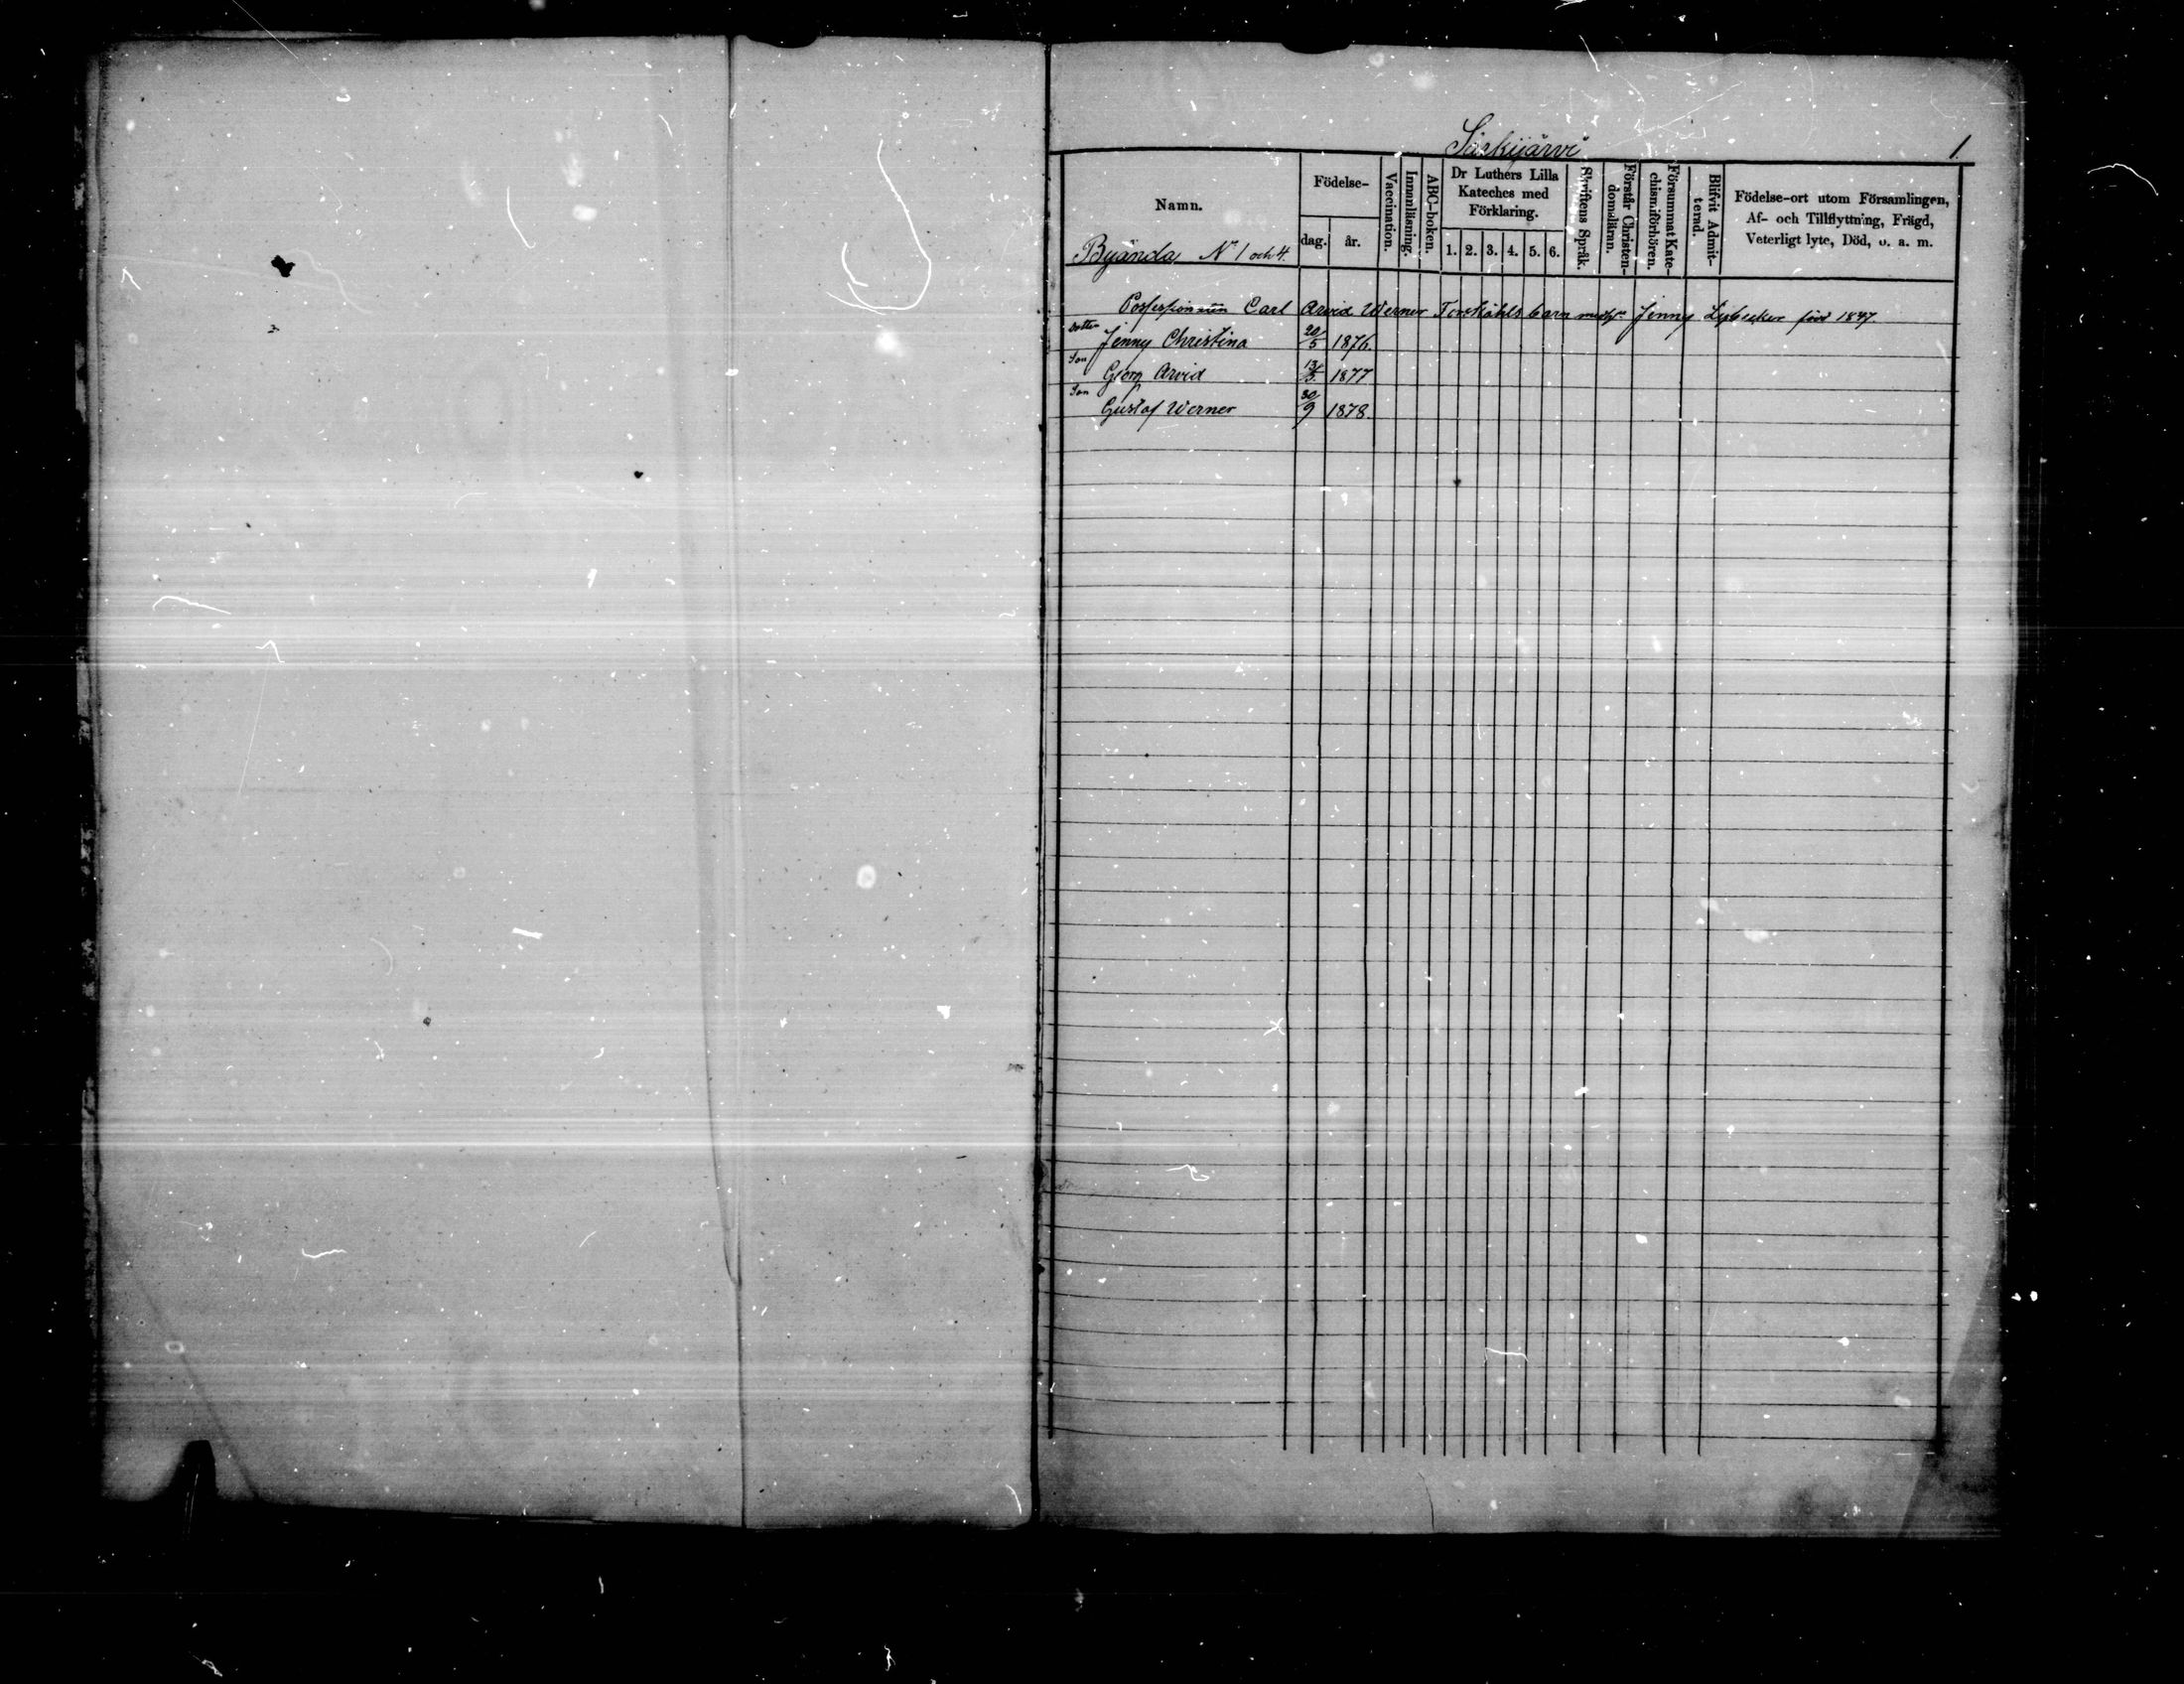 Särkijärvi
1.
Namn.
Födelse-
dag.
år.
Vaccination.
Innanläsning.
ABC-boken.
Dr Luthers Lilla
Kateches med
Förklaring.
1. 2. 3. 4. 5. 6.
Skriftens Språk.
Förstår Christen-
domsläran.
Försummat Kate-
chismiförhören.
Blifvit Admit-
terad.
Födelse-ort utom Församlingen,
Af- och Tillflyttning, Frägd,
Veterligt lyte, Död, o. a. m.
Byända No 1 och 4.
Carl Arvid Werner Forskåhls barn Jenny Lybecker född 1847
Dotter Jenny Christina 20/5 1876.
Son Georg Arvid 13/5. 1877
Son Gustaf Werner 30/9 1878.